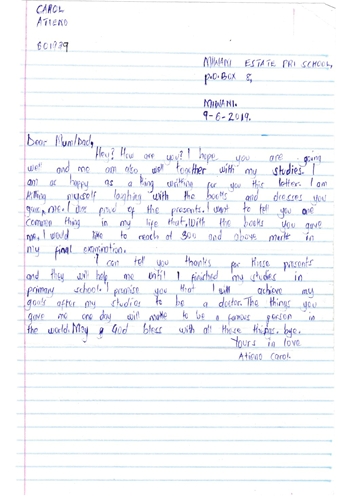 CAROL
ATIENO
601739
MIWANI ESTATE PRI SCHOOL,
P.O. BOX 8,
MIWANI.
9-6-2019.
Dear Mum/Dad,
Hey? How are you? I hope you are going
well and me am also well together with my studies. I
am as happy as a king writting for you this letter. I am
killing myself laughing with the books and dresses you
gave me. I are proud of the presents. I want to tell you one
common thing in my life that, with the books you gave
me, I would like to reach at 300 and above marks in
my final examination.
I can tell you thanks for these presents
and they will help me until I finished my studies in
primary school. I promise you that I will achieve my
goals after my studies to be a doctor. The things you
gave me one day will make to be a famous person in
the world. May God bless with all these things. bye.
Yours in love
Atieno Carol